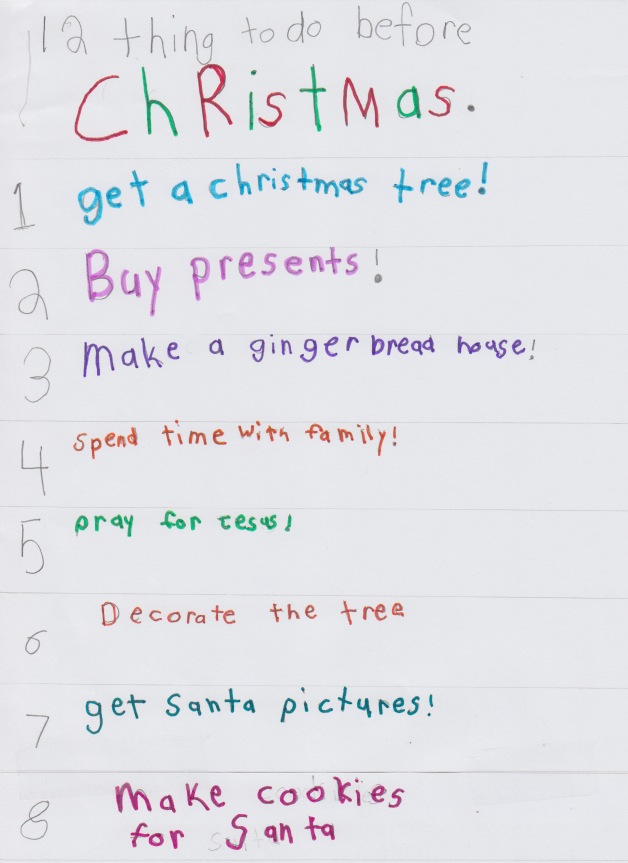 12 thing to do before
ChRistMas.
1 get a christmas tree!
2 Buy presents!
3 Make a ginger bread house!
4 spend time with family!
5 pray for Jesus!
6 Decorate the tree
7 get Santa pictures!
8 Make cookies
for Santa